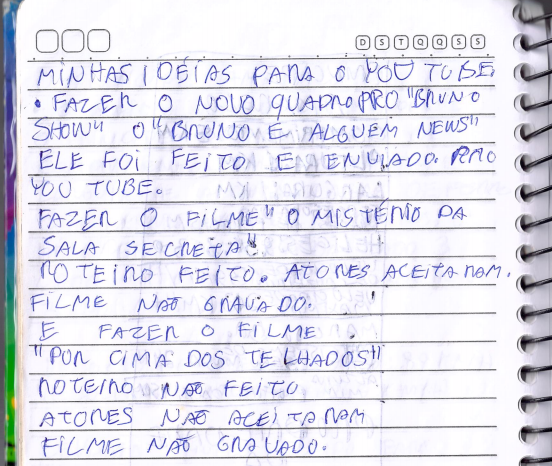 D S T Q Q S S
MINHAS IDÉIAS PARA O YOU TUBE.
• FAZER O NOVO QUADRO PRO "BRUNO
SHOW" O "BRUNO E ALGUÉM NEWS"
ELE FOI FEITO E ENVIADO. PRO
YOU TUBE.
FAZER O FILME "O MISTÉRIO DA
SALA SECRETA"
ROTEIRO FEITO. ATORES ACEITARAM.
FILME NÃO GRAVADO.
E FAZER O FILME
"POR CIMA DOS TELHADOS"
ROTEIRO NÃO FEITO
ATORES NÃO ACEITARAM
FILME NÃO GRAVADO.